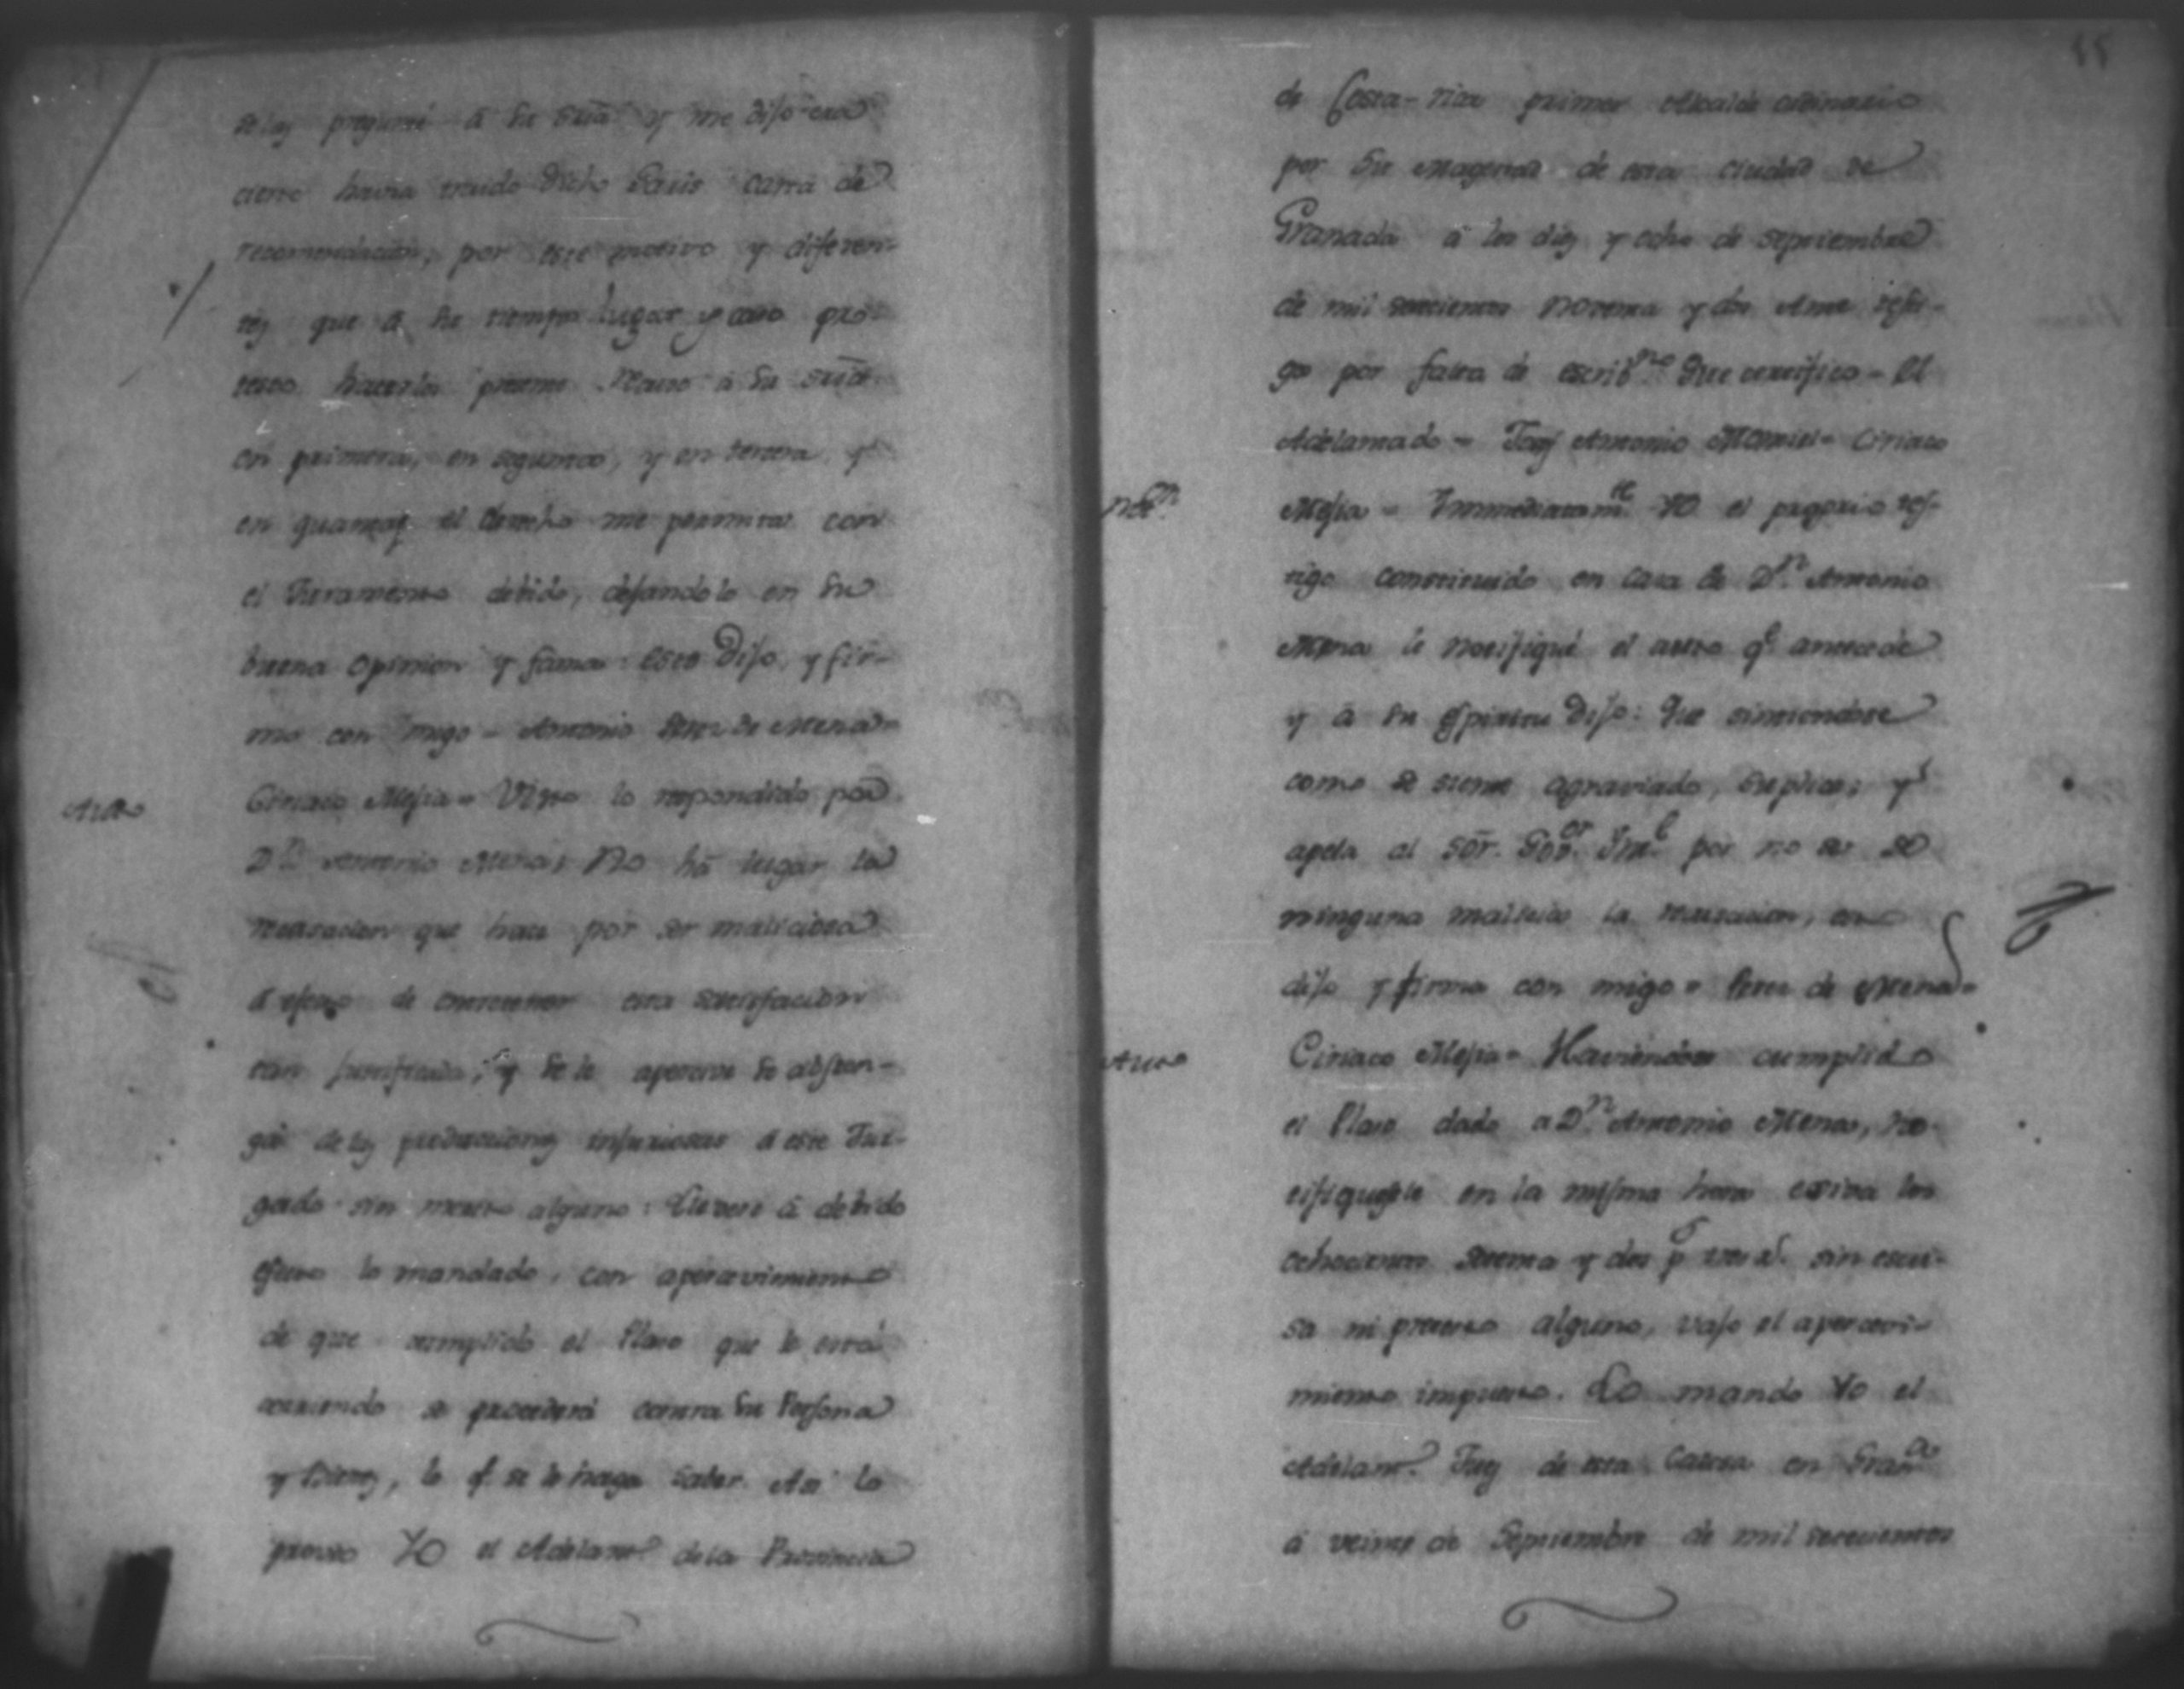 se los pregunté á su sria y me dijo era
cierto havia traido dicho Paris carta de
recomendacion, por este motivo y diferen-
tes que á su tiempo lugar y caso pro-
texto hacerlos presente Recuso á su sria
en primera, en segunda, y en tercera y
en quantas el derecho me permita con
el Juramento debido, dejandolo en su
buena opinion y fama: esto Dijo, y fir-
mo con migo = Antonio Perez de Mena =
Auto
Ciriaco Mejia = Visto lo respondido por
Dn Antonio Mena; No há lugar la
recusacion que hace por ser maliciosa
á efecto de entretener esta satisfacion
tan justificada, y se le aperceve se absten-
ga de las producciones injuriosas á este Juz-
gado sin merito alguno: Llevese á debido
efecto lo mandado, con apercevimiento
de que cumplido el Plazo que le está
corriendo se procederá contra su Persona
y bienes, lo q. se le haga saber. Asi lo
proveo Yo el Adelantdo dela Provincia
55
de Costa-rica primer Alcalde ordinario
por su Magestad de esta ciudad de
Granada á los diez y ocho de septiembre
de mil setecientos noventa y dos Ante testi-
gos por falta de escribno Que certifico = El
Adelantado = José Antonio Montiel = Ciriaco
Noton
Mejia = Immediatamte Yo el propio tes-
tigo constituido en casa de Dn Antonio
Mena le notifiqué el auto qe antecede
y á su espiritu Dijo: Que sintiendose
como se siente agraviado, suplica, y
apela al sor. Gor. Intl por no ser de
ninguna malicia la recusacion, esto
dijo y firmo con migo = Perez de Mena =
Auto
Ciriaco Mejia = Haviendose cumplido
el Plazo dado a Dn Antonio Mena, no-
tifiquesele en la misma hora exiva los
ochocientos setenta y dos ps sin escu-
sa ni pretexto alguno, vajo el apercevi-
miento impuesto. Lo mando Yo el
Adelantdo Juez de esta Causa en Granda
á veinte de Septiembre de mil setecientos